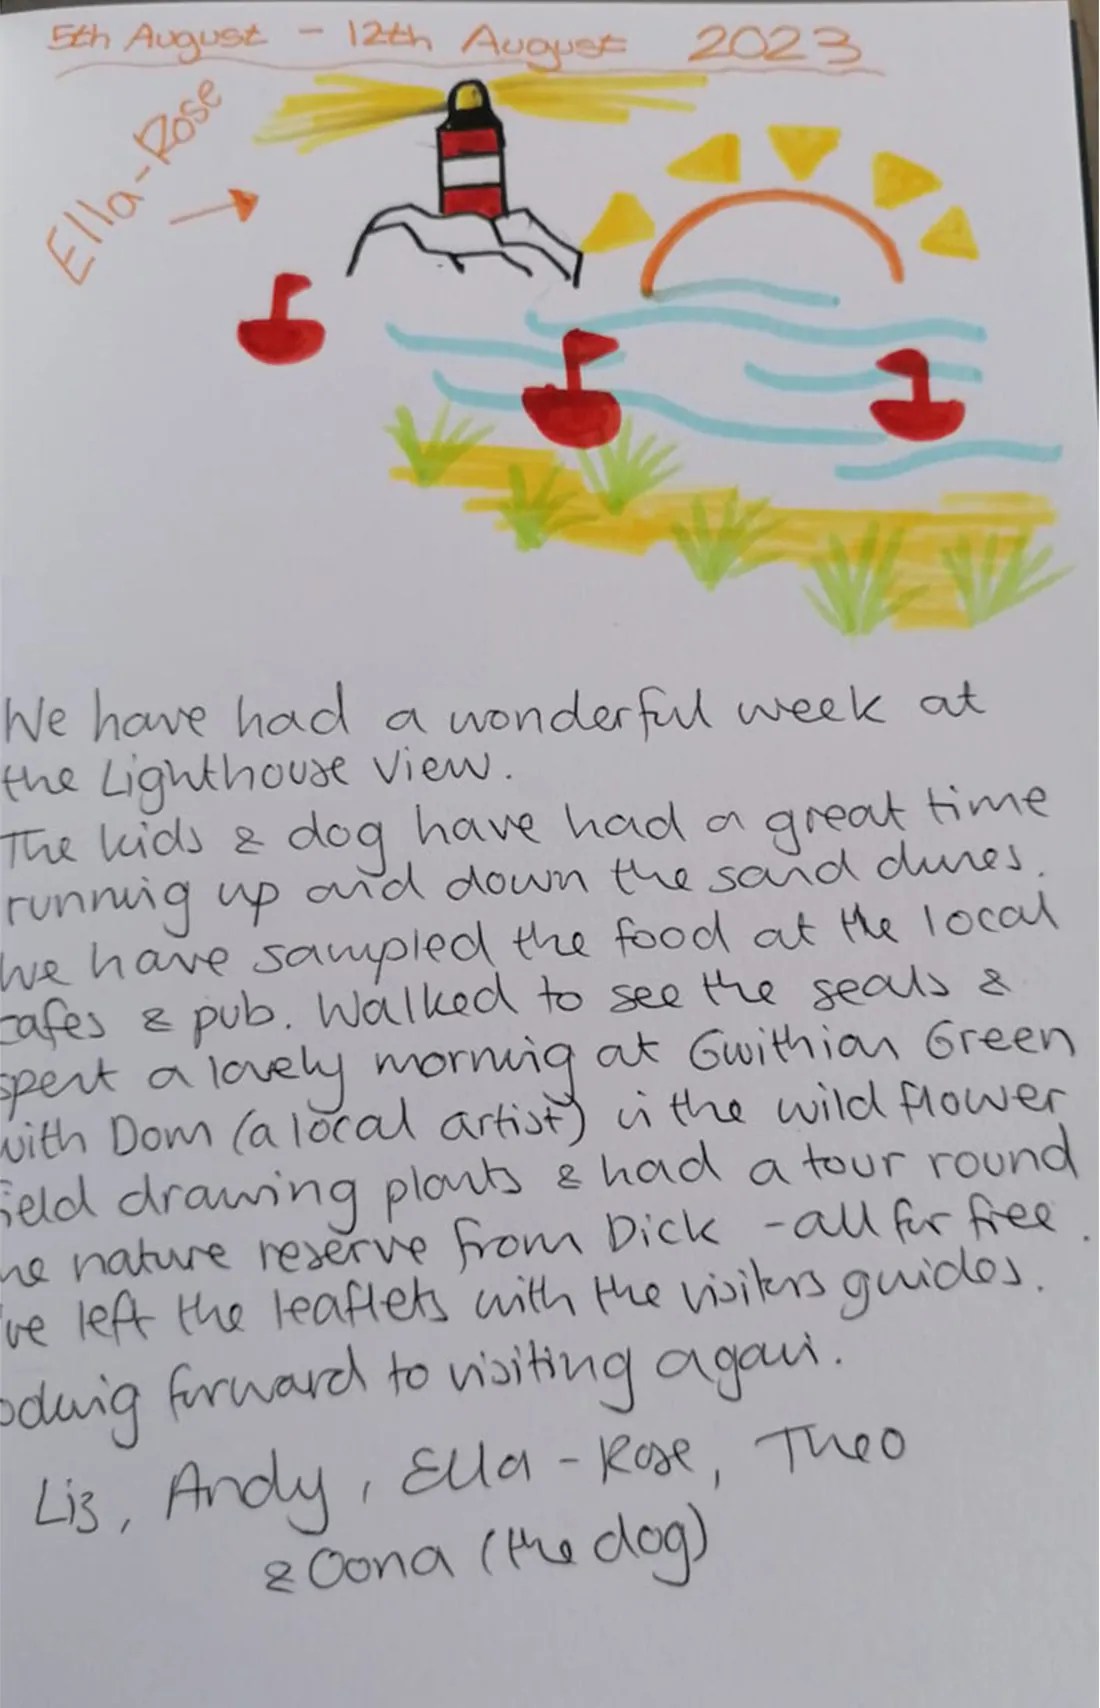 5th August - 12th August 2023
Ella-Rose
We have had a wonderful week at
the Lighthouse View.
The kids & dog have had a great time
running up and down the sand dunes.
We have sampled the food at the local
cafes & pub. Walked to see the seals &
spent a lovely morning at Gwithian Green
with Dom (a local artist) in the wild flower
field drawing plants & had a tour round
he nature reserve from Dick - all for free.
've left the leaflets with the visitors guides.
ooking forward to visiting again.
Liz, Andy, Ella-Rose, Theo
& Oona (the dog)